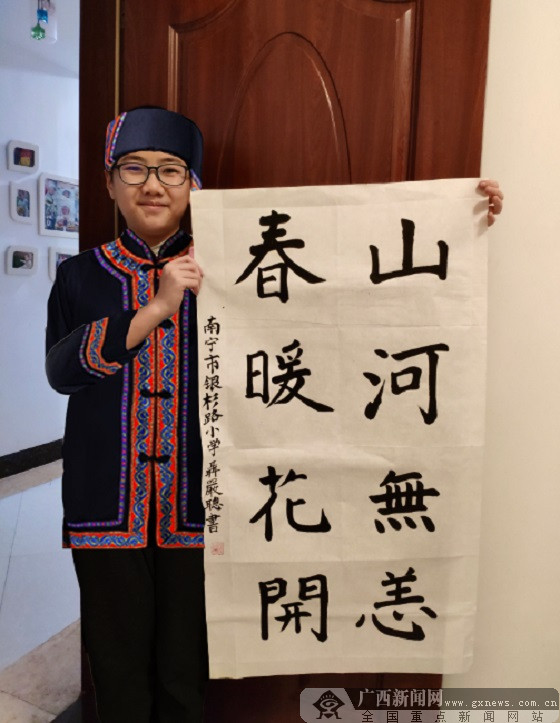 山河無恙
春暖花開
南宁市银杉路小学蒋嚴聰書
广西新闻网
www.gxnews.com.cn
全国重点新闻网站